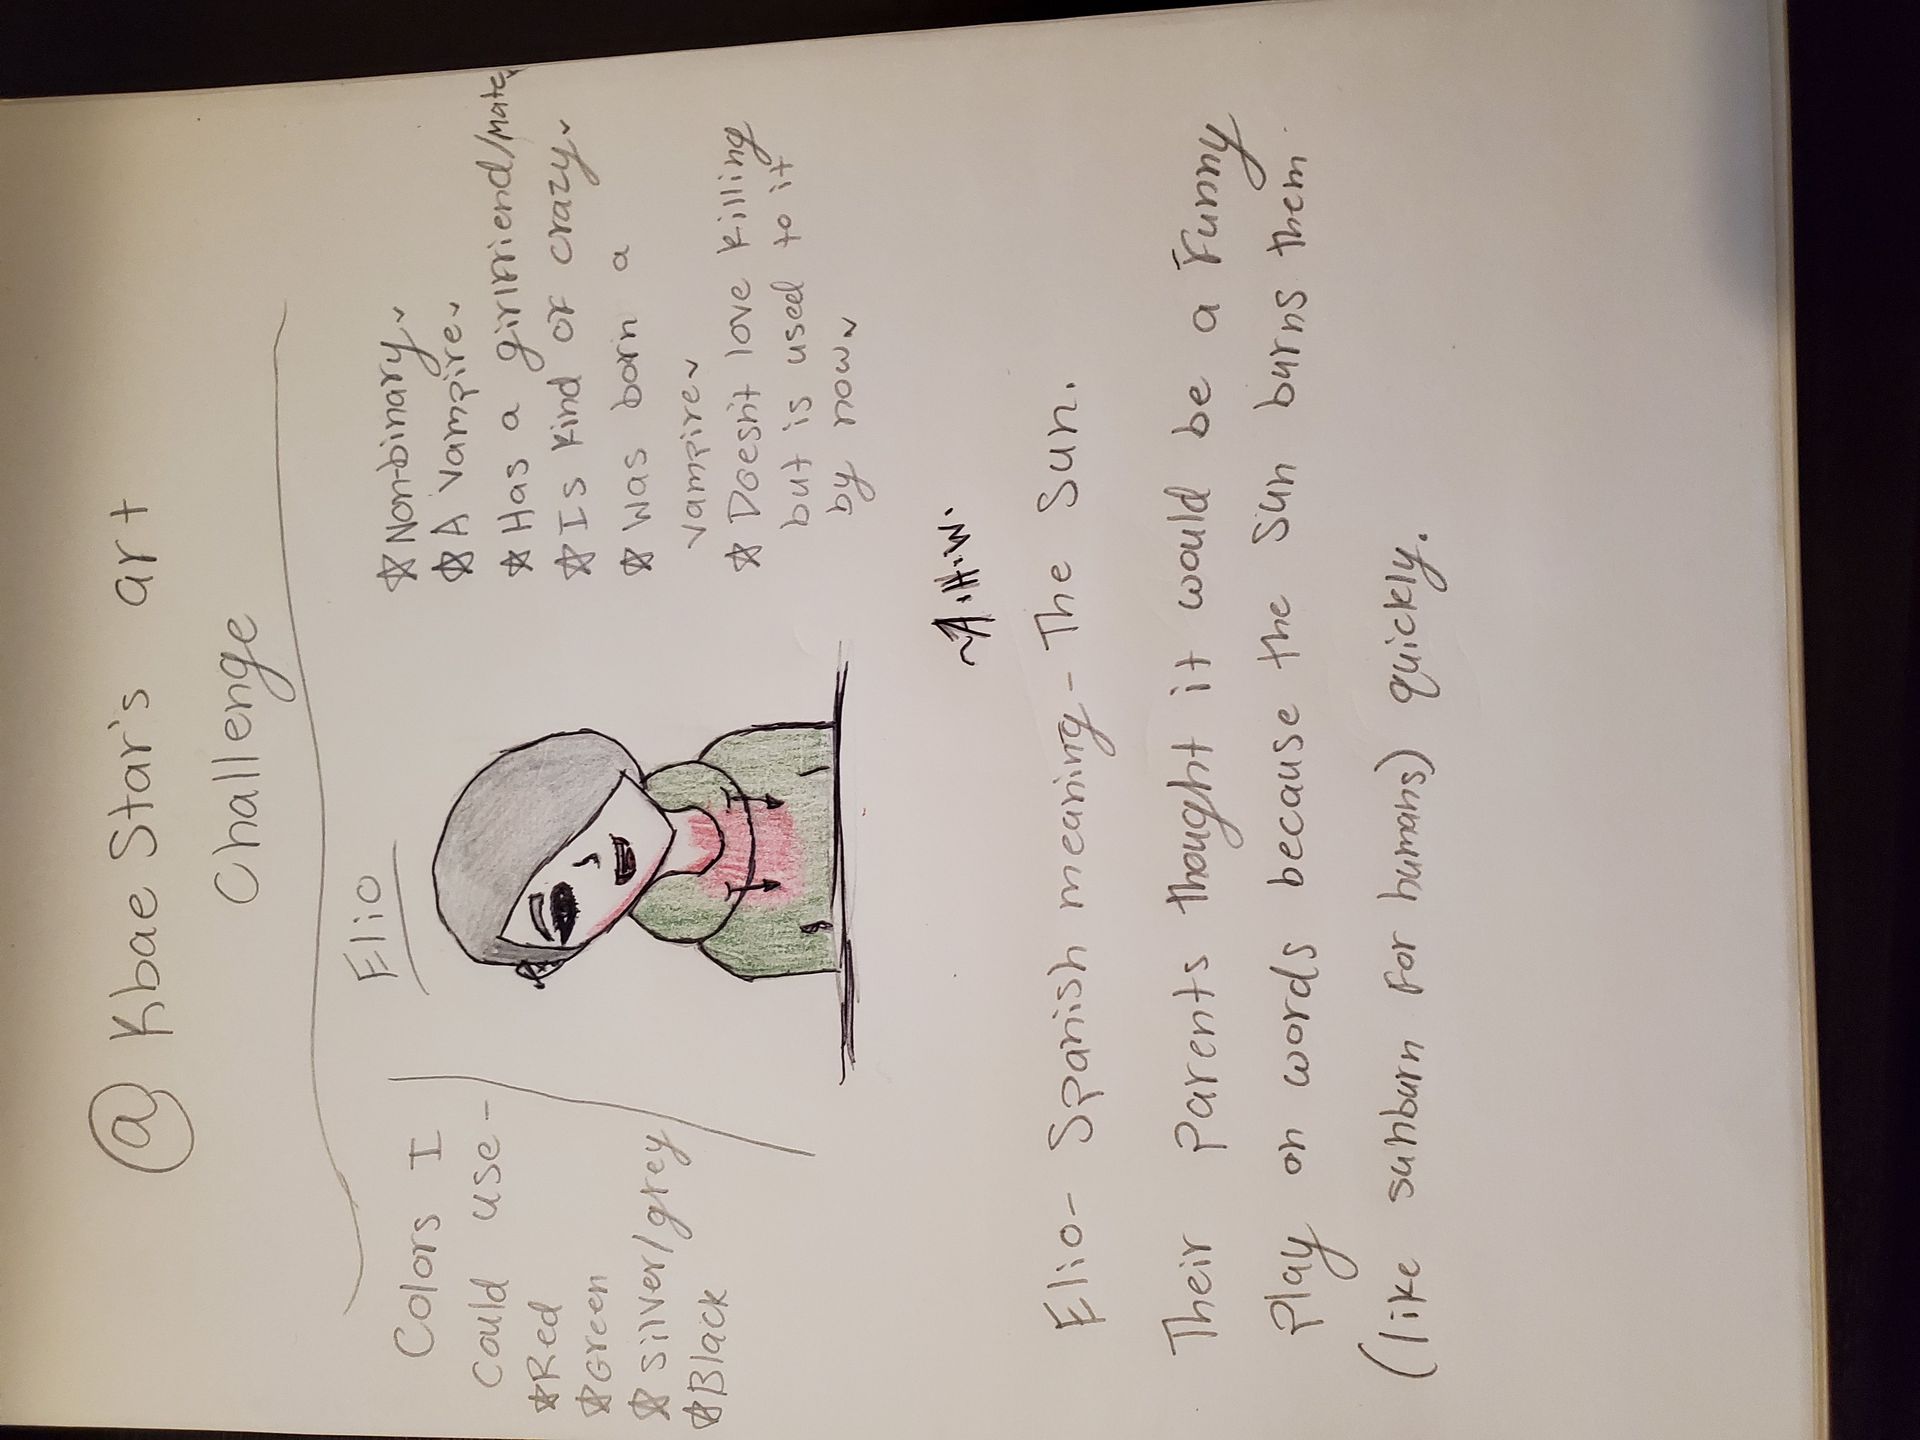 @ Kbae Star's art
Challenge
Colors I
could use-
☆Red
☆Green
☆Silver/grey
☆Black
Elio
☆Nonbinary~
☆A Vampire~
☆Has a girlfriend/mate~
☆Is kind of crazy~
☆Was born a
vampire~
☆Doesn't love killing
but is used to it
by now~
~A.H.W.
Elio- Spanish meaning- The Sun.
Their parents thought it would be a Funny
Play on words because the Sun burns them
(like sunburn for humans) quickly.